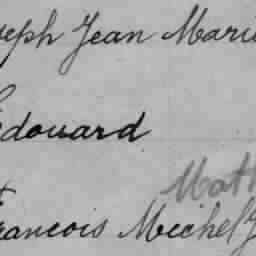 seph Jean Marie
Edouard
Math
François Michel J